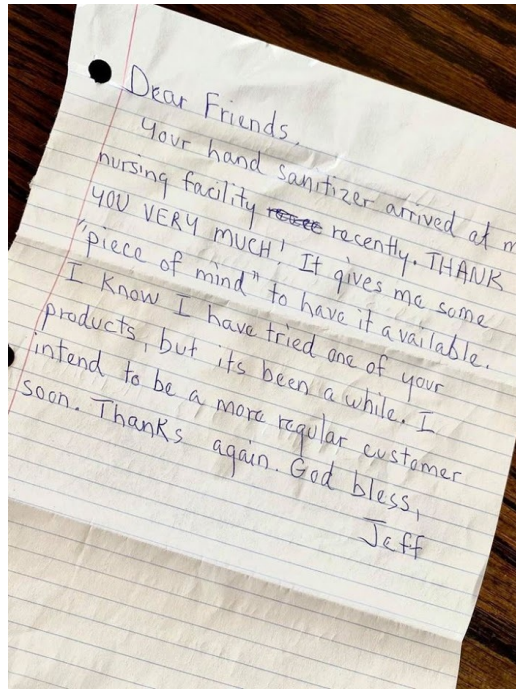 Dear Friends,
Your hand sanitizer arrived at m
nursing facility recently. THANK
YOU VERY MUCH! It gives me some
"piece of mind" to have it available.
I know I have tried one of your
products, but its been a while. I
intend to be a more regular customer
soon. Thanks again. God bless,
Jeff